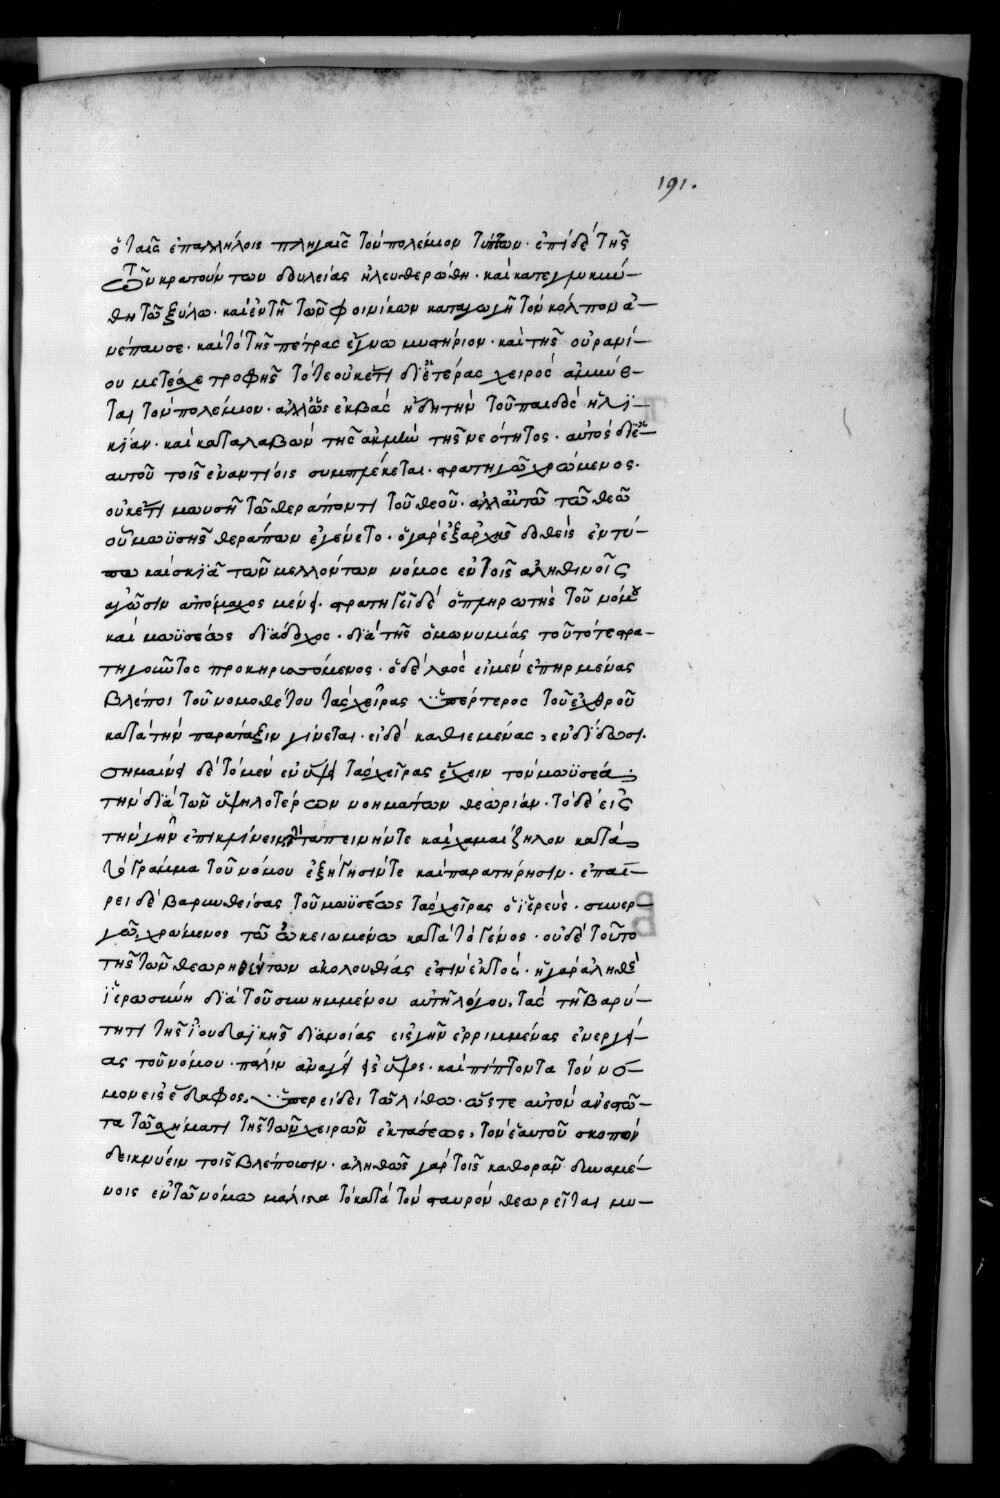 191.
ὁ ταῖς ἐπαλλήλοις πληγαῖς τὸν πολέμιον τύπτων. ἐπὶ δὲ τῆς
τῶν κρατούντων δουλείας ἠλευθερώθη. καὶ κατεγλυκάν-
θη τῶ ξύλω. καὶ ἐν τῆ τῶν φοινίκων καταγωγῆ τὸν κόλπον ἀ-
νέπαυσε. καὶ τὸ τῆς πέτρας ἔγνω μυστήριον. καὶ τῆς οὐρανί-
ου μετέσχε τροφῆς τότε οὐκέτι δι' ἑτέρας χειρὸς ἀμύνε-
ται τὸν πολέμιον. ἀλλ' ὡς ἐκβὰς ἤδη τὴν τοῦ παιδὸς ἡλι-
κίαν. καὶ καταλαβὼν τῆς ἀκμὴν τῆς νεότητος. αὐτὸς δι' ἑ-
αυτοῦ τοῖς ἐναντίοις συμπλέκεται. στρατηγῶ χρώμενος.
οὐκέτι μωυσῆ τῶ θεράποντι τοῦ θεοῦ. ἀλλ' αὐτῶ τῶ θεῶ
οὗ μωϋσῆς θεράπων ἐγένετο. ὁ γὰρ ἐξ ἀρχῆς δοθεὶς ἐν τύ-
πω καὶ σκιᾶ τῶν μελλόντων νόμος ἐν τοῖς ἀληθινοῖς
ἀγῶσιν ἀπόμαχος μένει. στρατηγεῖ δὲ ὁ πληρωτὴς τοῦ νόμου
καὶ μωϋσέως διάδοχος. διὰ τῆς ὁμωνυμίας τοῦ τότε στρα-
τηγοῦντος προκηρυσσόμενος. ὁ δὲ λαὸς εἰ μὲν ἐπηρμένας
βλέποι τοῦ νομοθέτου τὰς χεῖρας ὑπέρτερος τοῦ ἐχθροῦ
κατὰ τὴν παράταξιν γίνεται. εἰ δὲ καθιεμένας, ἐνδίδωσι.
σημαίνει δὲ τὸ μὲν ἐν ὕψει τὰς χεῖρας ἔχειν τὸν μωϋσέα
τὴν διὰ τῶν ὑψηλοτέρων νοημάτων θεωρίαν. τὸ δὲ εἰς
τὴν γῆν ἐπικλίνειν, τὴν ταπεινήν τε καὶ χαμαίζηλον κατὰ
τὸ γράμμα τοῦ νόμου ἐξήγησίν τε καὶ παρατήρησιν. ἐπαί-
ρει δὲ βαρυνθείσας τοῦ μωϋσέως τὰς χεῖρας ὁ ἱερεύς. συνερ-
γῶ χρώμενος τῶ ὠκειωμένω κατὰ τὸ γένος. οὐδὲ τοῦτο
τῆς τῶν θεωρηθέντων ἀκολουθίας ἐστὶν ἐκτός. ἡ γὰρ ἀληθὴς
ἱερωσύνη διὰ τοῦ συνημμένου αὐτῆ λόγου, τὰς τῆ βαρύ-
τητι τῆς ἰουδαϊκῆς διανοίας εἰς γῆν ἐρριμμένας ἐνεργεί-
ας τοῦ νόμου. πάλιν ἀνάγει εἰς ὕψος. καὶ πίπτοντα τὸν νό-
μον εἰς ἔδαφος. ὑπερείδει τῶ λίθω. ὥστε αὐτὸν ἀνεστῶ-
τα τῶ σχήματι τῆς τῶν χειρῶν ἐκτάσεως, τὸν ἑαυτοῦ σκοπὸν
δεικνύειν τοῖς βλέπουσιν. ἀληθῶς γὰρ τοῖς καθορᾶν δυναμέ-
νοις ἐν τῶ νόμω μάλιστα τὸ κατὰ τὸν σταυρὸν θεωρεῖται μυ-